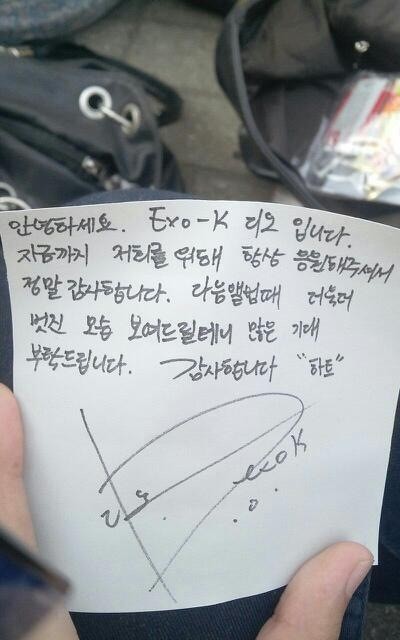 안녕하세요. Exo-K 디오 입니다.
지금까지 저희를 위해 항상 응원해주셔서
정말 감사합니다. 다음앨범때 더욱더
멋진 모습 보여드릴테니 많은 기대
부탁드립니다. 감사합니다 "하트"
exoK